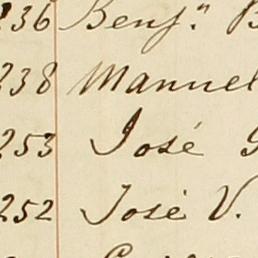 236 Benj.n B
238 Manuel
253 José G
252 José V.